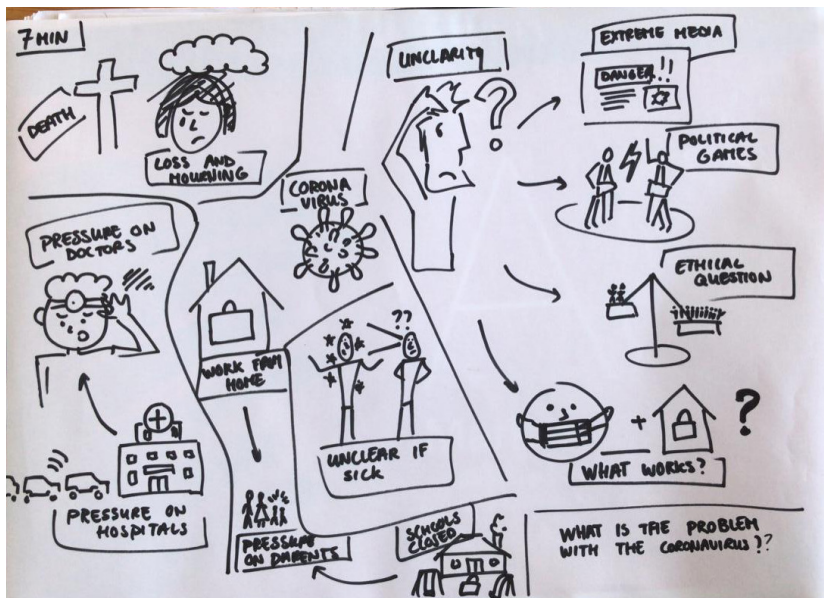 7 MIN
DEATH
LOSS AND
MOURNING
UNCLARITY
?
EXTREME MEDIA
DANGER!!
POLITICAL
GAMES
CORONA
VIRUS
PRESSURE ON
DOCTORS
ETHICAL
QUESTION
WORK FROM
HOME
??
UNCLEAR IF
SICK
+ ?
WHAT WORKS?
PRESSURE ON
HOSPITALS
PRESSURE
ON PARENTS
SCHOOLS
CLOSED
WHAT IS THE PROBLEM
WITH THE CORONAVIRUS??